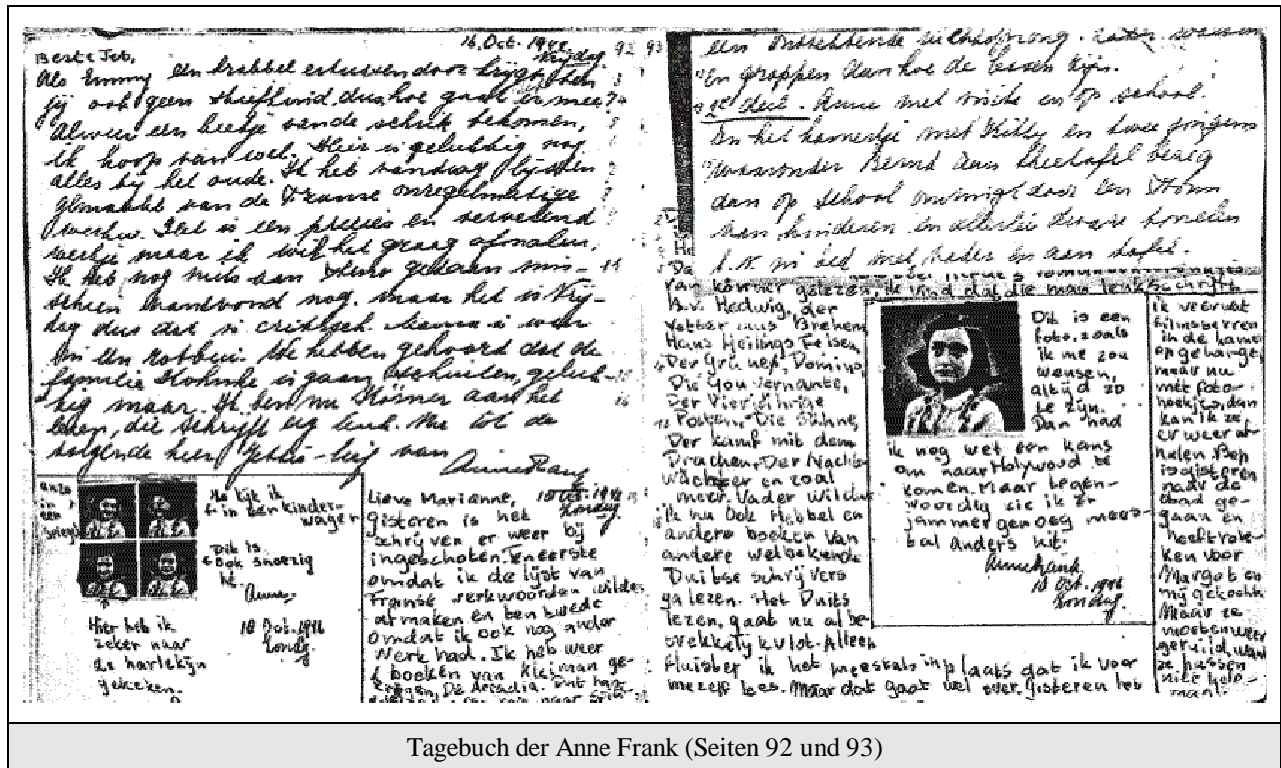 16. Oct. 1942
Vrijdag
92 93
Beste Jet,
Als Emmy een krabbel
jij ook geen dus hoe gaat ermee
Alweer een beetje van de schrik bekomen,
ik hoop van wel. Hier is gelukkig nog
alles bij het oude. Ik heb vandaag lijsten
gemaakt van de Franse onregelmatige
werkw. Het is een precies en vervelend
werkje maar ik wil het graag afmaken.
Ik heb nog niets aan steno gedaan mis-
schien vanavond nog, maar het is Vrij-
dag dus dat is critiek. Mama is weer
We hebben gehoord dat de
familie is gaan schuilen, geluk-
kig maar. Ik ben nu Körner aan het
lezen, die schrijft erg leuk. Nu tot de
volgende keer van
Anne Frank
Hier kijk ik
in een kinder-
wagen
Dit is
ook snoezig
hé.
Anne.
Hier heb ik
zeker naar
de harlekijn
gekeken.
18 Oct. 1942
Zondag
Lieve Marianne,
18 Oct. 1942
Zondag
gisteren is het
schrijven er weer bij
ingeschoten. Ten eerste
omdat ik de lijst van
Franse werkwoorden wilde
afmaken en ten twede
omdat ik ook nog ander
werk had. Ik heb weer
2 boeken van Kleiman ge-
kregen, De Arcadia.
een later
en grappen dan hoe de lessen zijn.
2e deel. Anne met op school.
In het kamertje met Kitty en twee jongens
waaronder Bernd aan theetafel bezig
dan op school omringt door een
van kinderen en allerlei tonelen
b.v. in bed met vader en aan tafel.
van körver gelezen, ik vind dat die man leuk schrijft
b.v. Hedwig, der
Vetter aus Bremen
Hans Heilings Felsen,
Der Grüne Domino,
Die Gouvernante,
Der Vierjährige
Posten, Die Sühne,
Der kamf mit dem
Drachen, Der Nacht-
wächter en zoal
meer. Vader wil dat
ik nu ook Hebbel en
andere boeken van
andere welbekende
Duitse schrijvers
ga lezen. Het Duits
lezen, gaat nu al be-
trekkelijk vlot. Alleen
fluister ik het meestal inplaats dat ik voor
mezelf lees. Maar dat gaat wel over. Gisteren heb
Dit is een
foto, zoals
ik me zou
wensen,
altijd zo
te zijn.
Dan had
ik nog wel een kans
om naar Holywood te
komen. Maar tegen-
woordig zie ik er
jammer genoeg mees-
tal anders uit.
Anne Frank
18 Oct. 1942
Zondag
ik weer wat
filmsterren
in de kamer
opgehangen,
maar nu
met foto-
hoekjes, dan
kan ik ze
er weer af-
halen. Bep
is gisteren
naar de
stad ge-
gaan en
heeft rok-
ken voor
Margot en
mij gekocht
Maar ze
moeten weer
geruild, want
ze passen
niet hele-
maal.
Tagebuch der Anne Frank (Seiten 92 und 93)